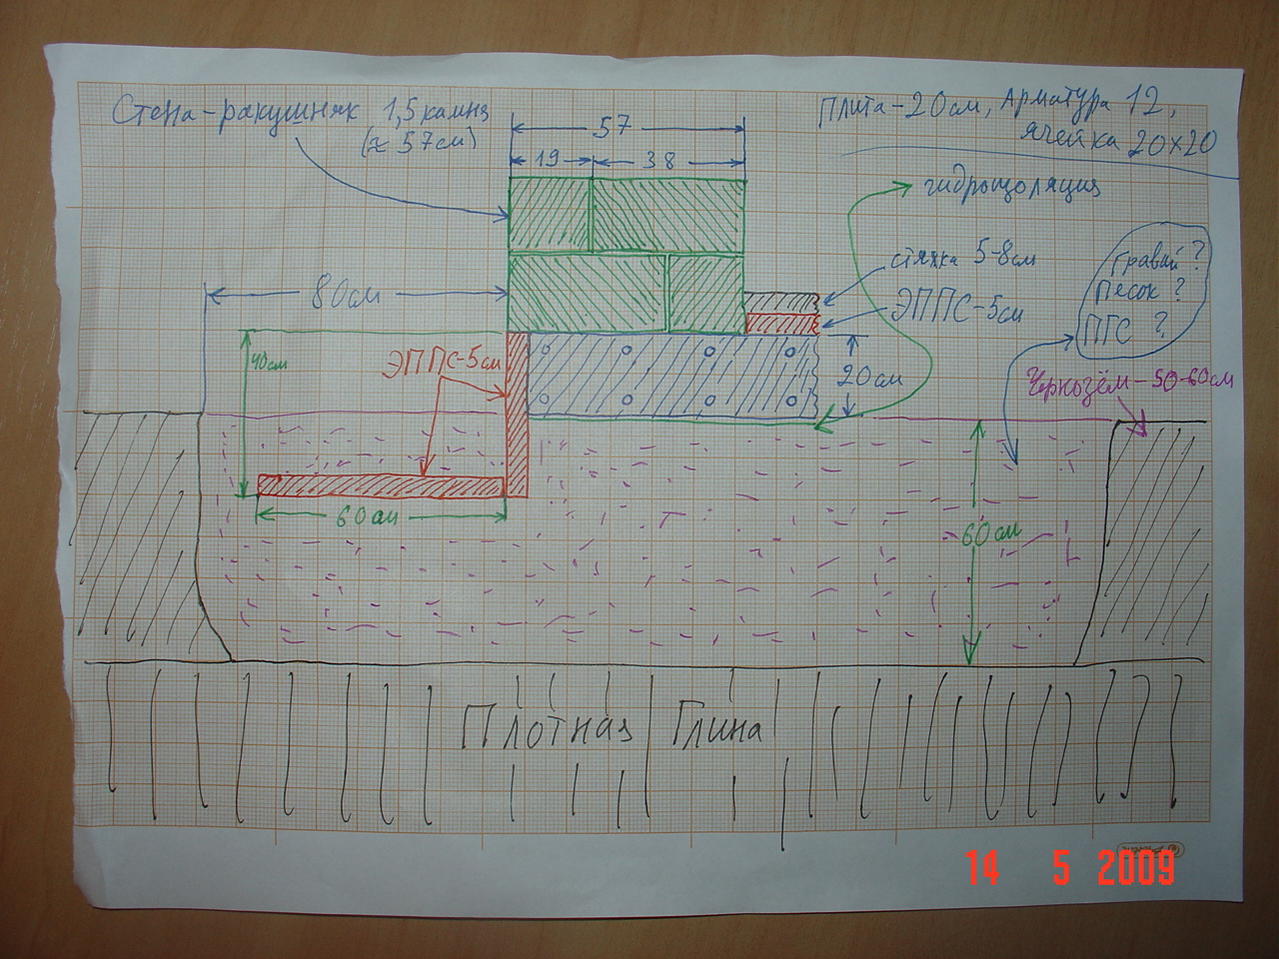 Стена-ракушняк 1,5 камня
(≈ 57см)
57
19
38
Плита-20см, Арматура 12,
ячейка 20×20
гидроизоляция
стяжка 5-8см
ЭППС-5см
Гравий?
Песок?
ПГС ?
80см
40см
ЭППС-5см
20см
Чернозём-50-60см
60см
60см
Плотная Глина
14 5 2009